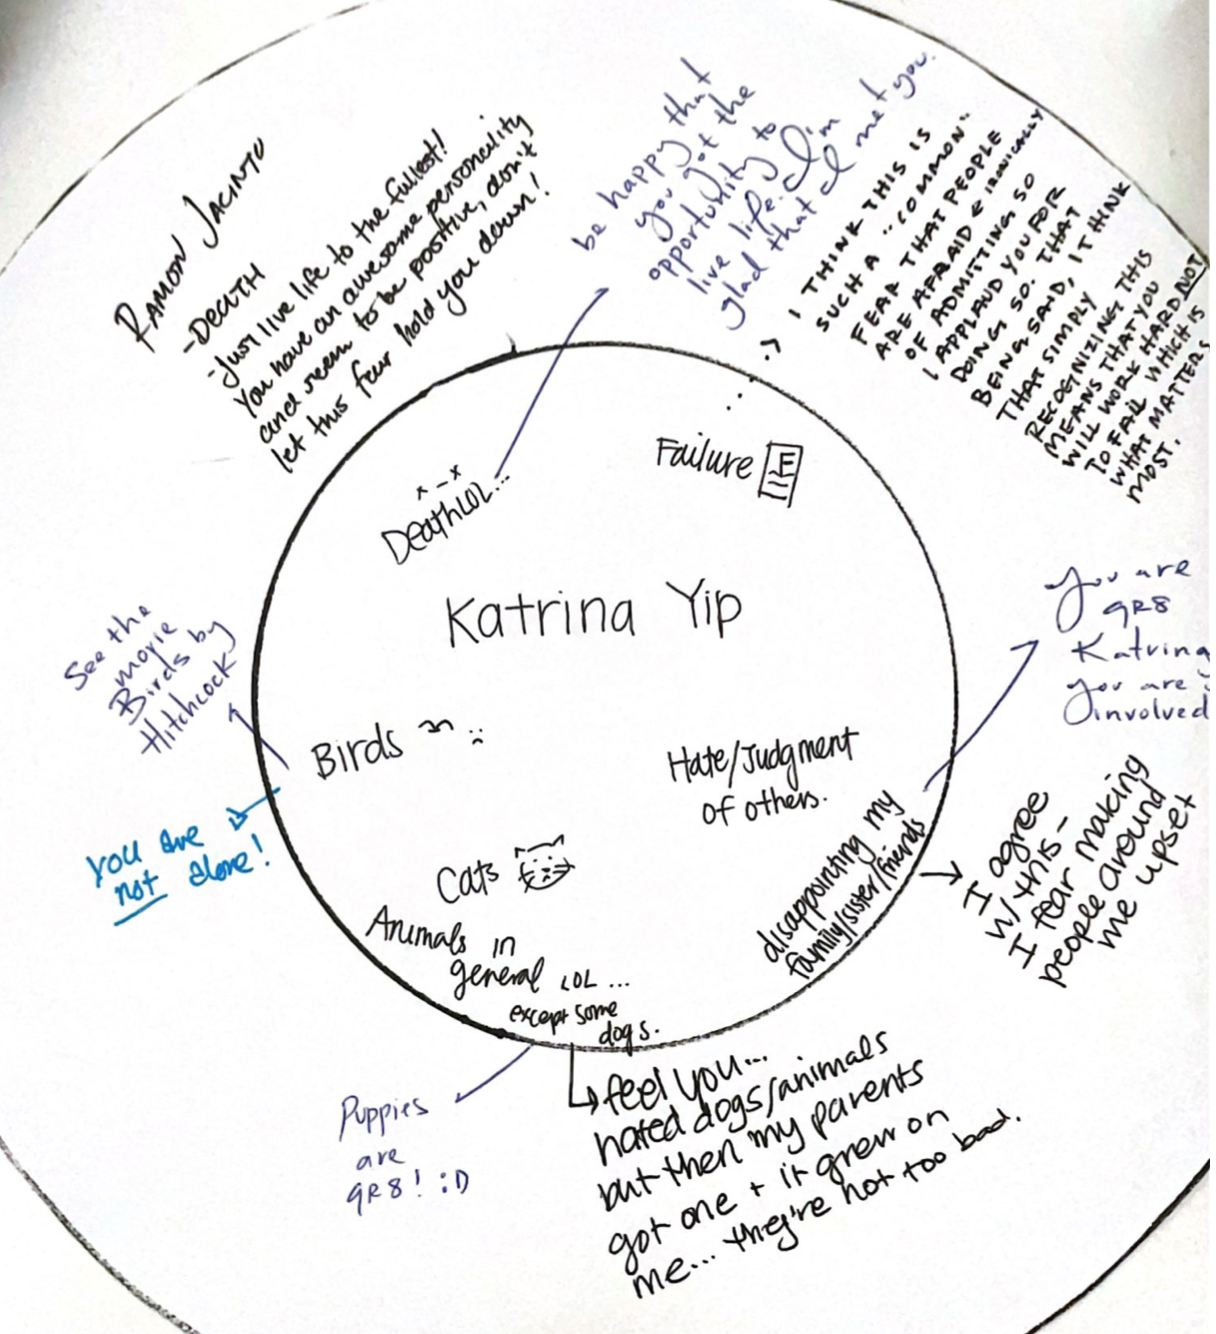 RAMON JACINTO
-DEATH
-Just live life to the fullest!
You have an awesome personality
and seem to be positive, don't
let this fear hold you down!
be happy that
you got the
opportunity to
live life. I'm
glad that I met you.
I THINK THIS IS
SUCH A "COMMON"
FEAR THAT PEOPLE
ARE AFRAID & IRONICALLY
OF ADMITTING SO
I APPLAUD YOU FOR
DOING SO. THAT
BEING SAID, I THINK
THAT SIMPLY
RECOGNIZING THIS
MEANS THAT YOU
WILL WORK HARD NOT
TO FAIL WHICH IS
WHAT MATTERS
MOST.
Failure F
x_x
Death LOL...
Katrina Yip
See the
movie
Birds by
Hitchcock
Birds
you are
not alone!
Hate/Judgment
of others.
You are
gR8
Katrina
you are
involved
disappointing my
family/sister/friends
I agree
w/ this-
I fear making
people around
me upset
Cats
Animals in
general LOL ...
except some
dogs.
Puppies
are
gR8! :D
feel you...
hated dogs/animals
but then my parents
got one + it grew on
me... they're not too bad.